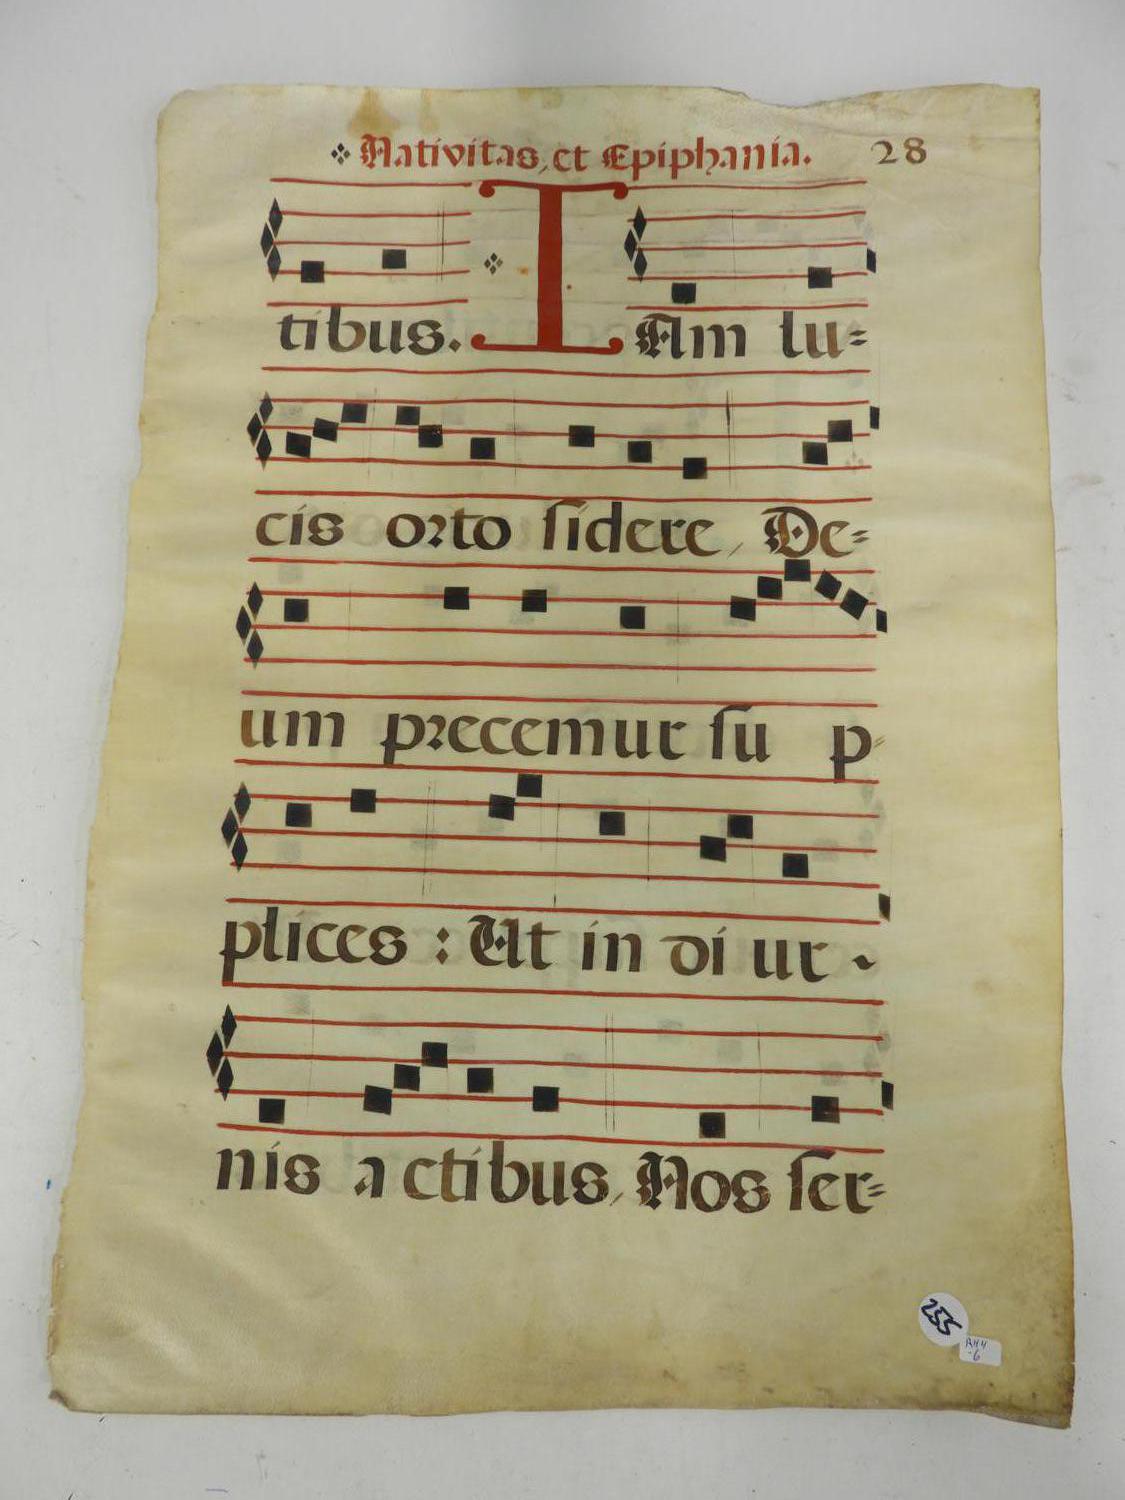 Nativitas, et Epiphania. 28
tibus. IAm lu=
cis orto sidere, De=
um precemur su p=
plices : Ut in di ur -
nis a ctibus, Nos ser=
255
RH4
-6